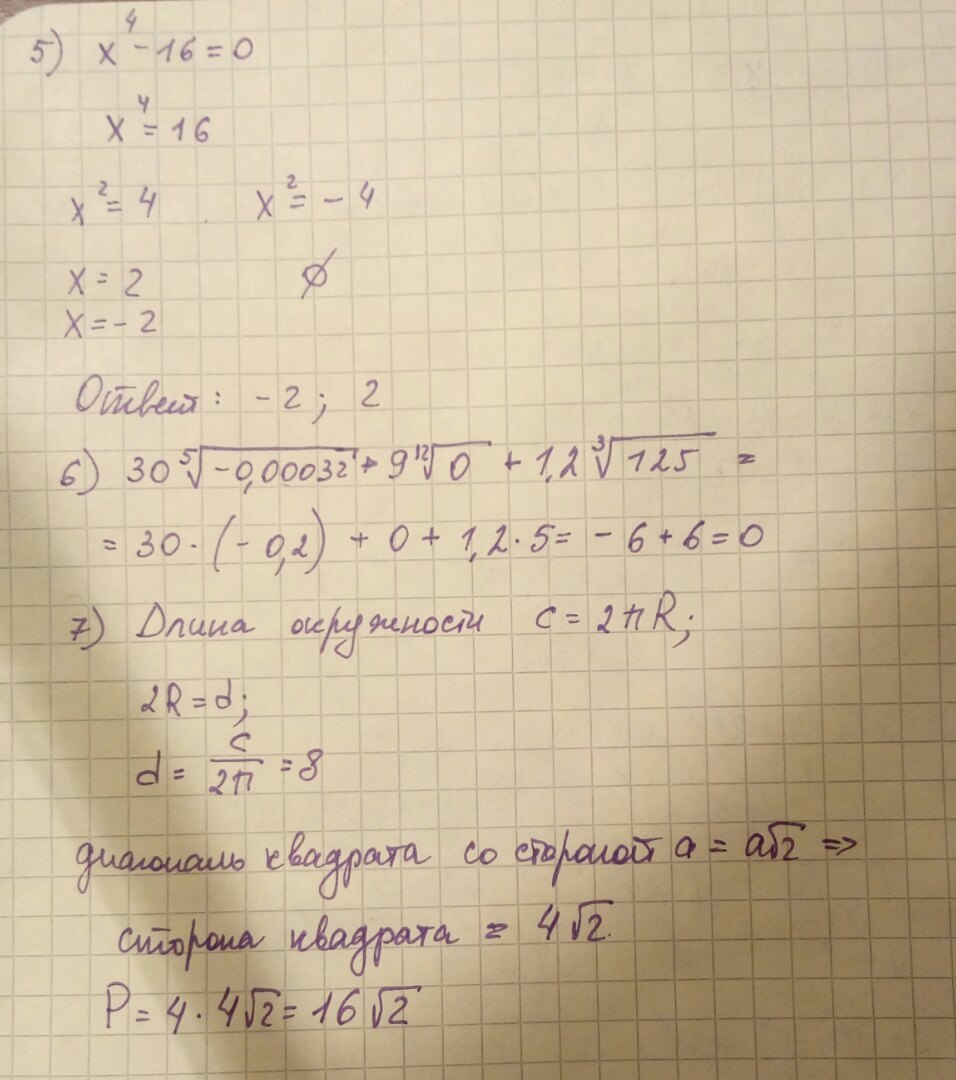 5) x⁴ - 16 = 0
x⁴ = 16
x² = 4 x² = - 4
x = 2 ∅
x = - 2
Ответ: - 2; 2
6) 30 ⁵√-0,00032 + 9 ¹²√0 + 1,2 ³√125 =
= 30 · (- 0,2) + 0 + 1,2 · 5 = - 6 + 6 = 0
7) Длина окружности c = 2πR;
2R = d;
d = c/2π = 8
диагональ квадрата со стороной a = a√2 =>
сторона квадрата = 4√2.
P = 4 · 4√2 = 16√2